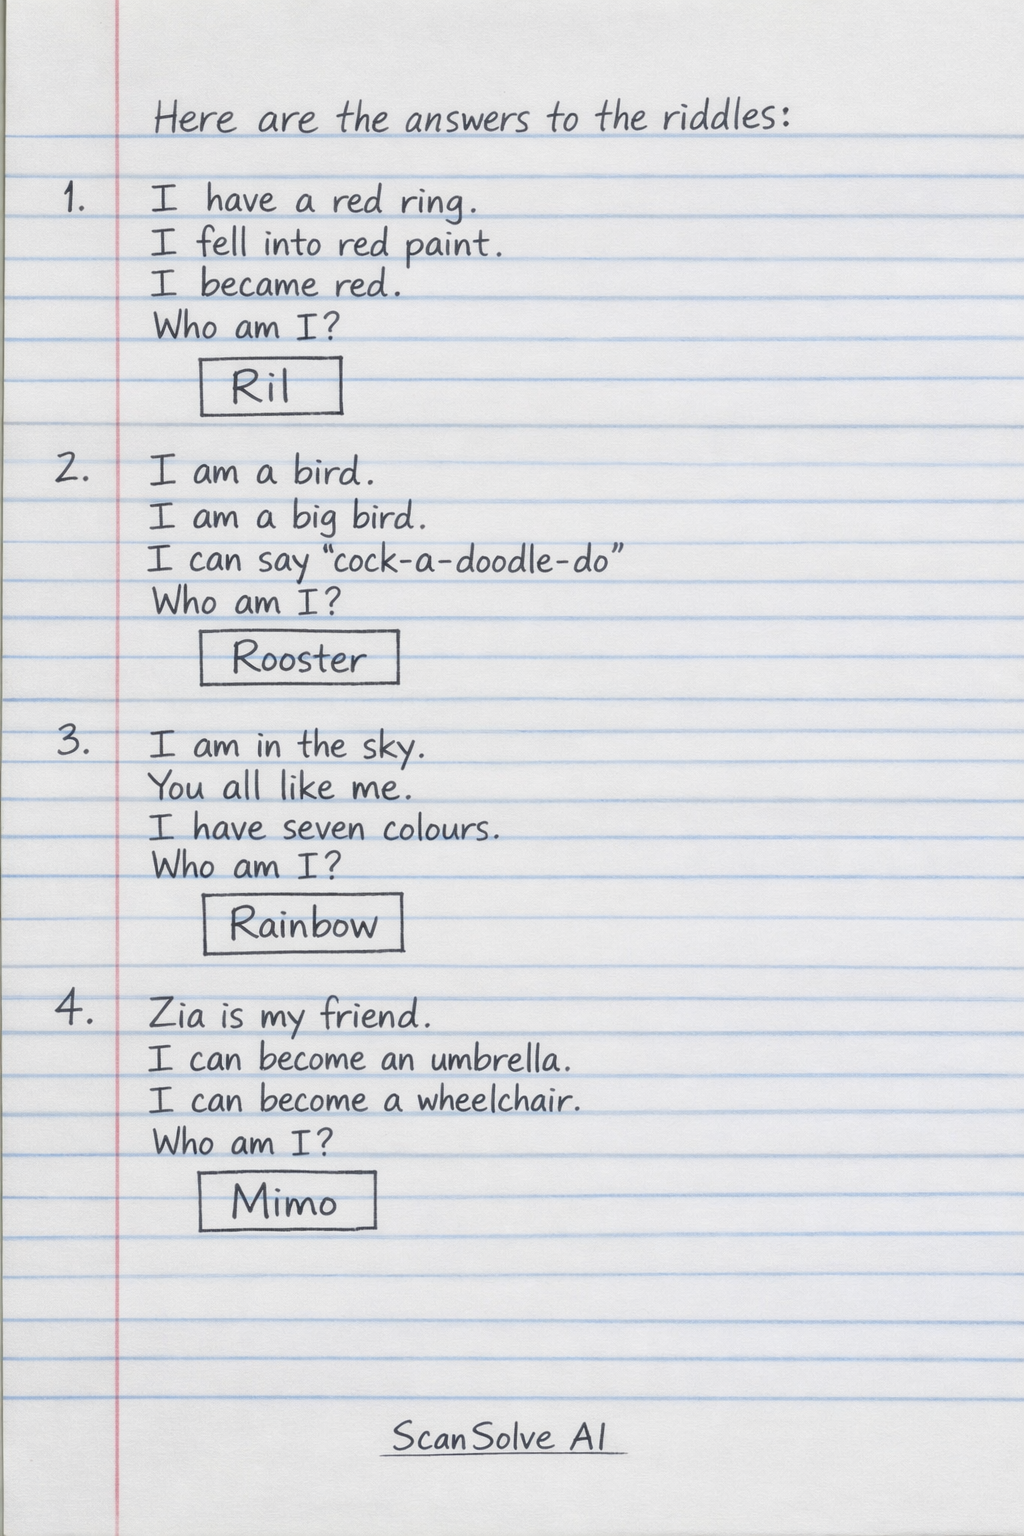 Here are the answers to the riddles:
1. I have a red ring.
I fell into red paint.
I became red.
Who am I?
Ril
2. I am a bird.
I am a big bird.
I can say “cock-a-doodle-do”
Who am I?
Rooster
3. I am in the sky.
You all like me.
I have seven colours.
Who am I?
Rainbow
4. Zia is my friend.
I can become an umbrella.
I can become a wheelchair.
Who am I?
Mimo
ScanSolve AI